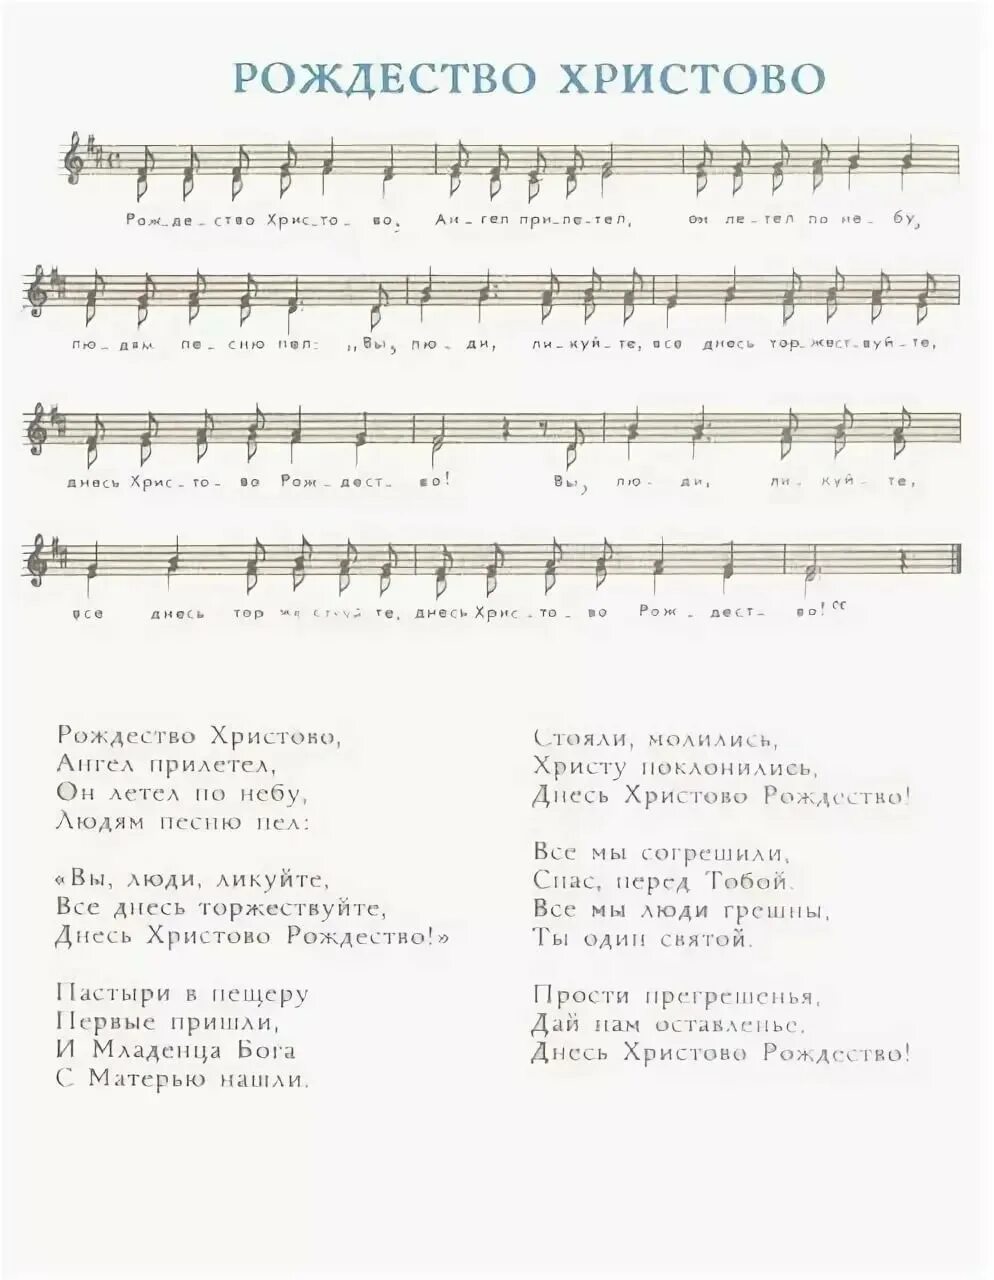 РОЖДЕСТВО ХРИСТОВО
Рож_де_ство Хрис_то_во, Ан_гел при_ле_тел, он ле_тел по не_бу,
лю_дям пе_сню пел: „Вы, лю_ди, ли_куй_те, все днесь тор_жест_вуй_те,
днесь Хрис_то_во Рож_дест_во! Вы, лю_ди, ли_куй_те,
все днесь тор же ствуй те, днесь Хрис_то_во Рож_дест_во!“
Рождество Христово,
Ангел прилетел,
Он летел по небу,
Людям песню пел:
«Вы, люди, ликуйте,
Все днесь торжествуйте,
Днесь Христово Рождество!»
Пастыри в пещеру
Первые пришли,
И Младенца Бога
С Матерью нашли.
Стояли, молились,
Христу поклонились,
Днесь Христово Рождество!
Все мы согрешили,
Спас, перед Тобой.
Все мы люди грешны,
Ты один святой.
Прости прегрешенья,
Дай нам оставленье.
Днесь Христово Рождество!